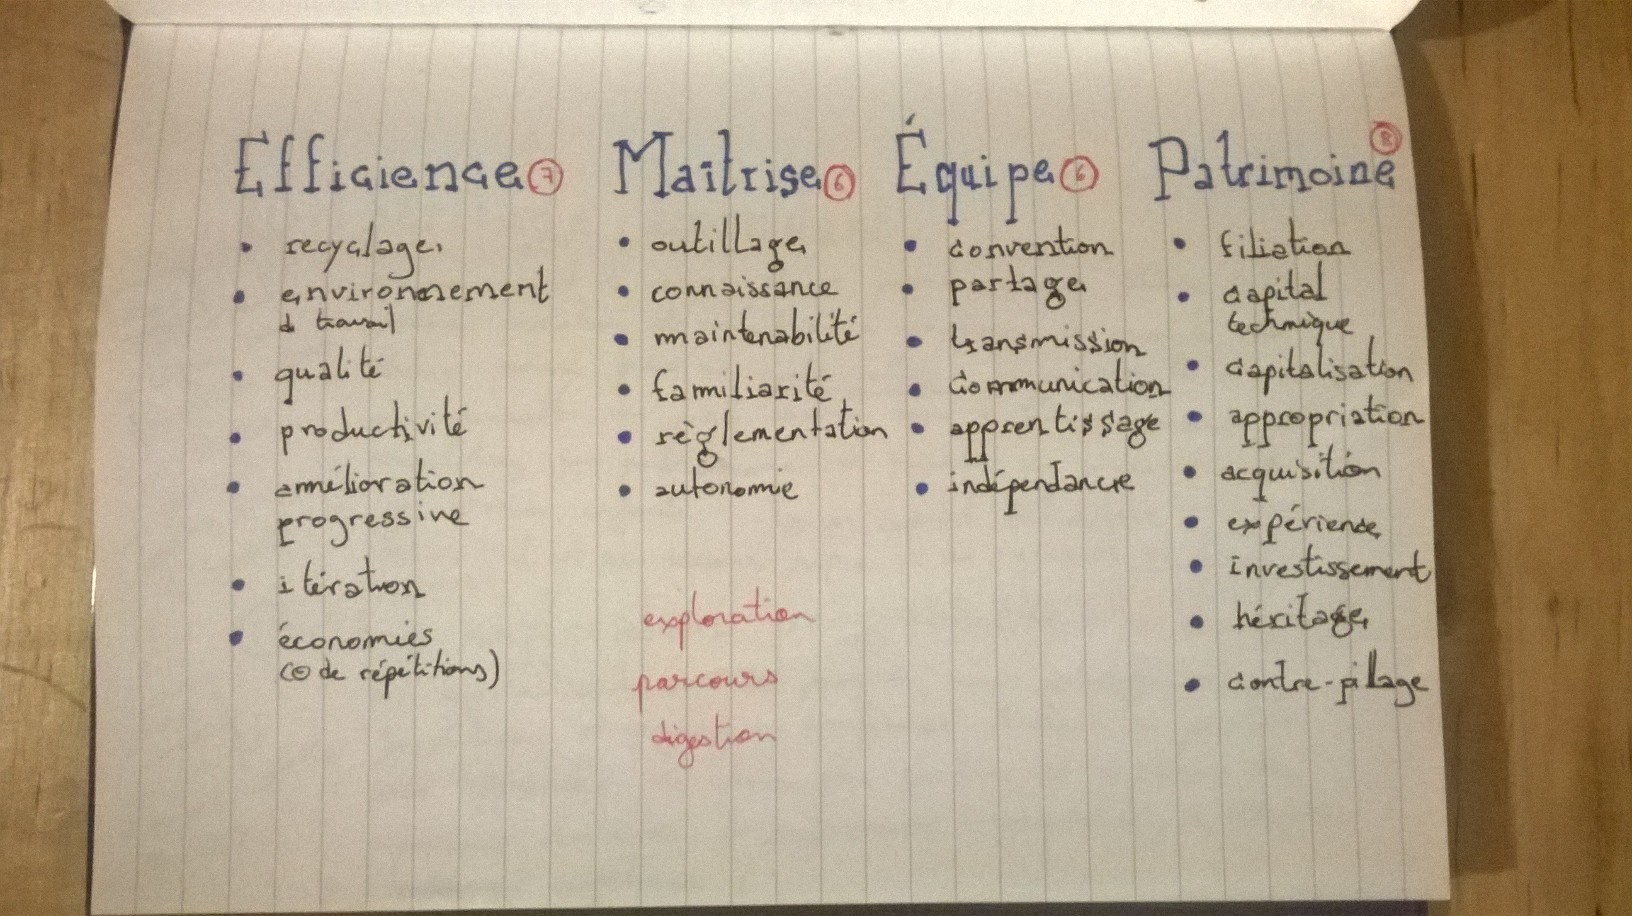 Efficience 7
• recyclage
• environnement
de travail
• qualité
• productivité
• amélioration
progressive
• itération
• économies
(⊖ de répétitions)
Maîtrise 6
• outillage
• connaissance
• maintenabilité
• familiarité
• règlementation
• autonomie
exploration
parcours
digestion
Équipe 6
• convention
• partage
• transmission
• communication
• apprentissage
• indépendance
Patrimoine 8
• filiation
• capital
technique
• capitalisation
• appropriation
• acquisition
• expérience
• investissement
• héritage
• contre-pillage